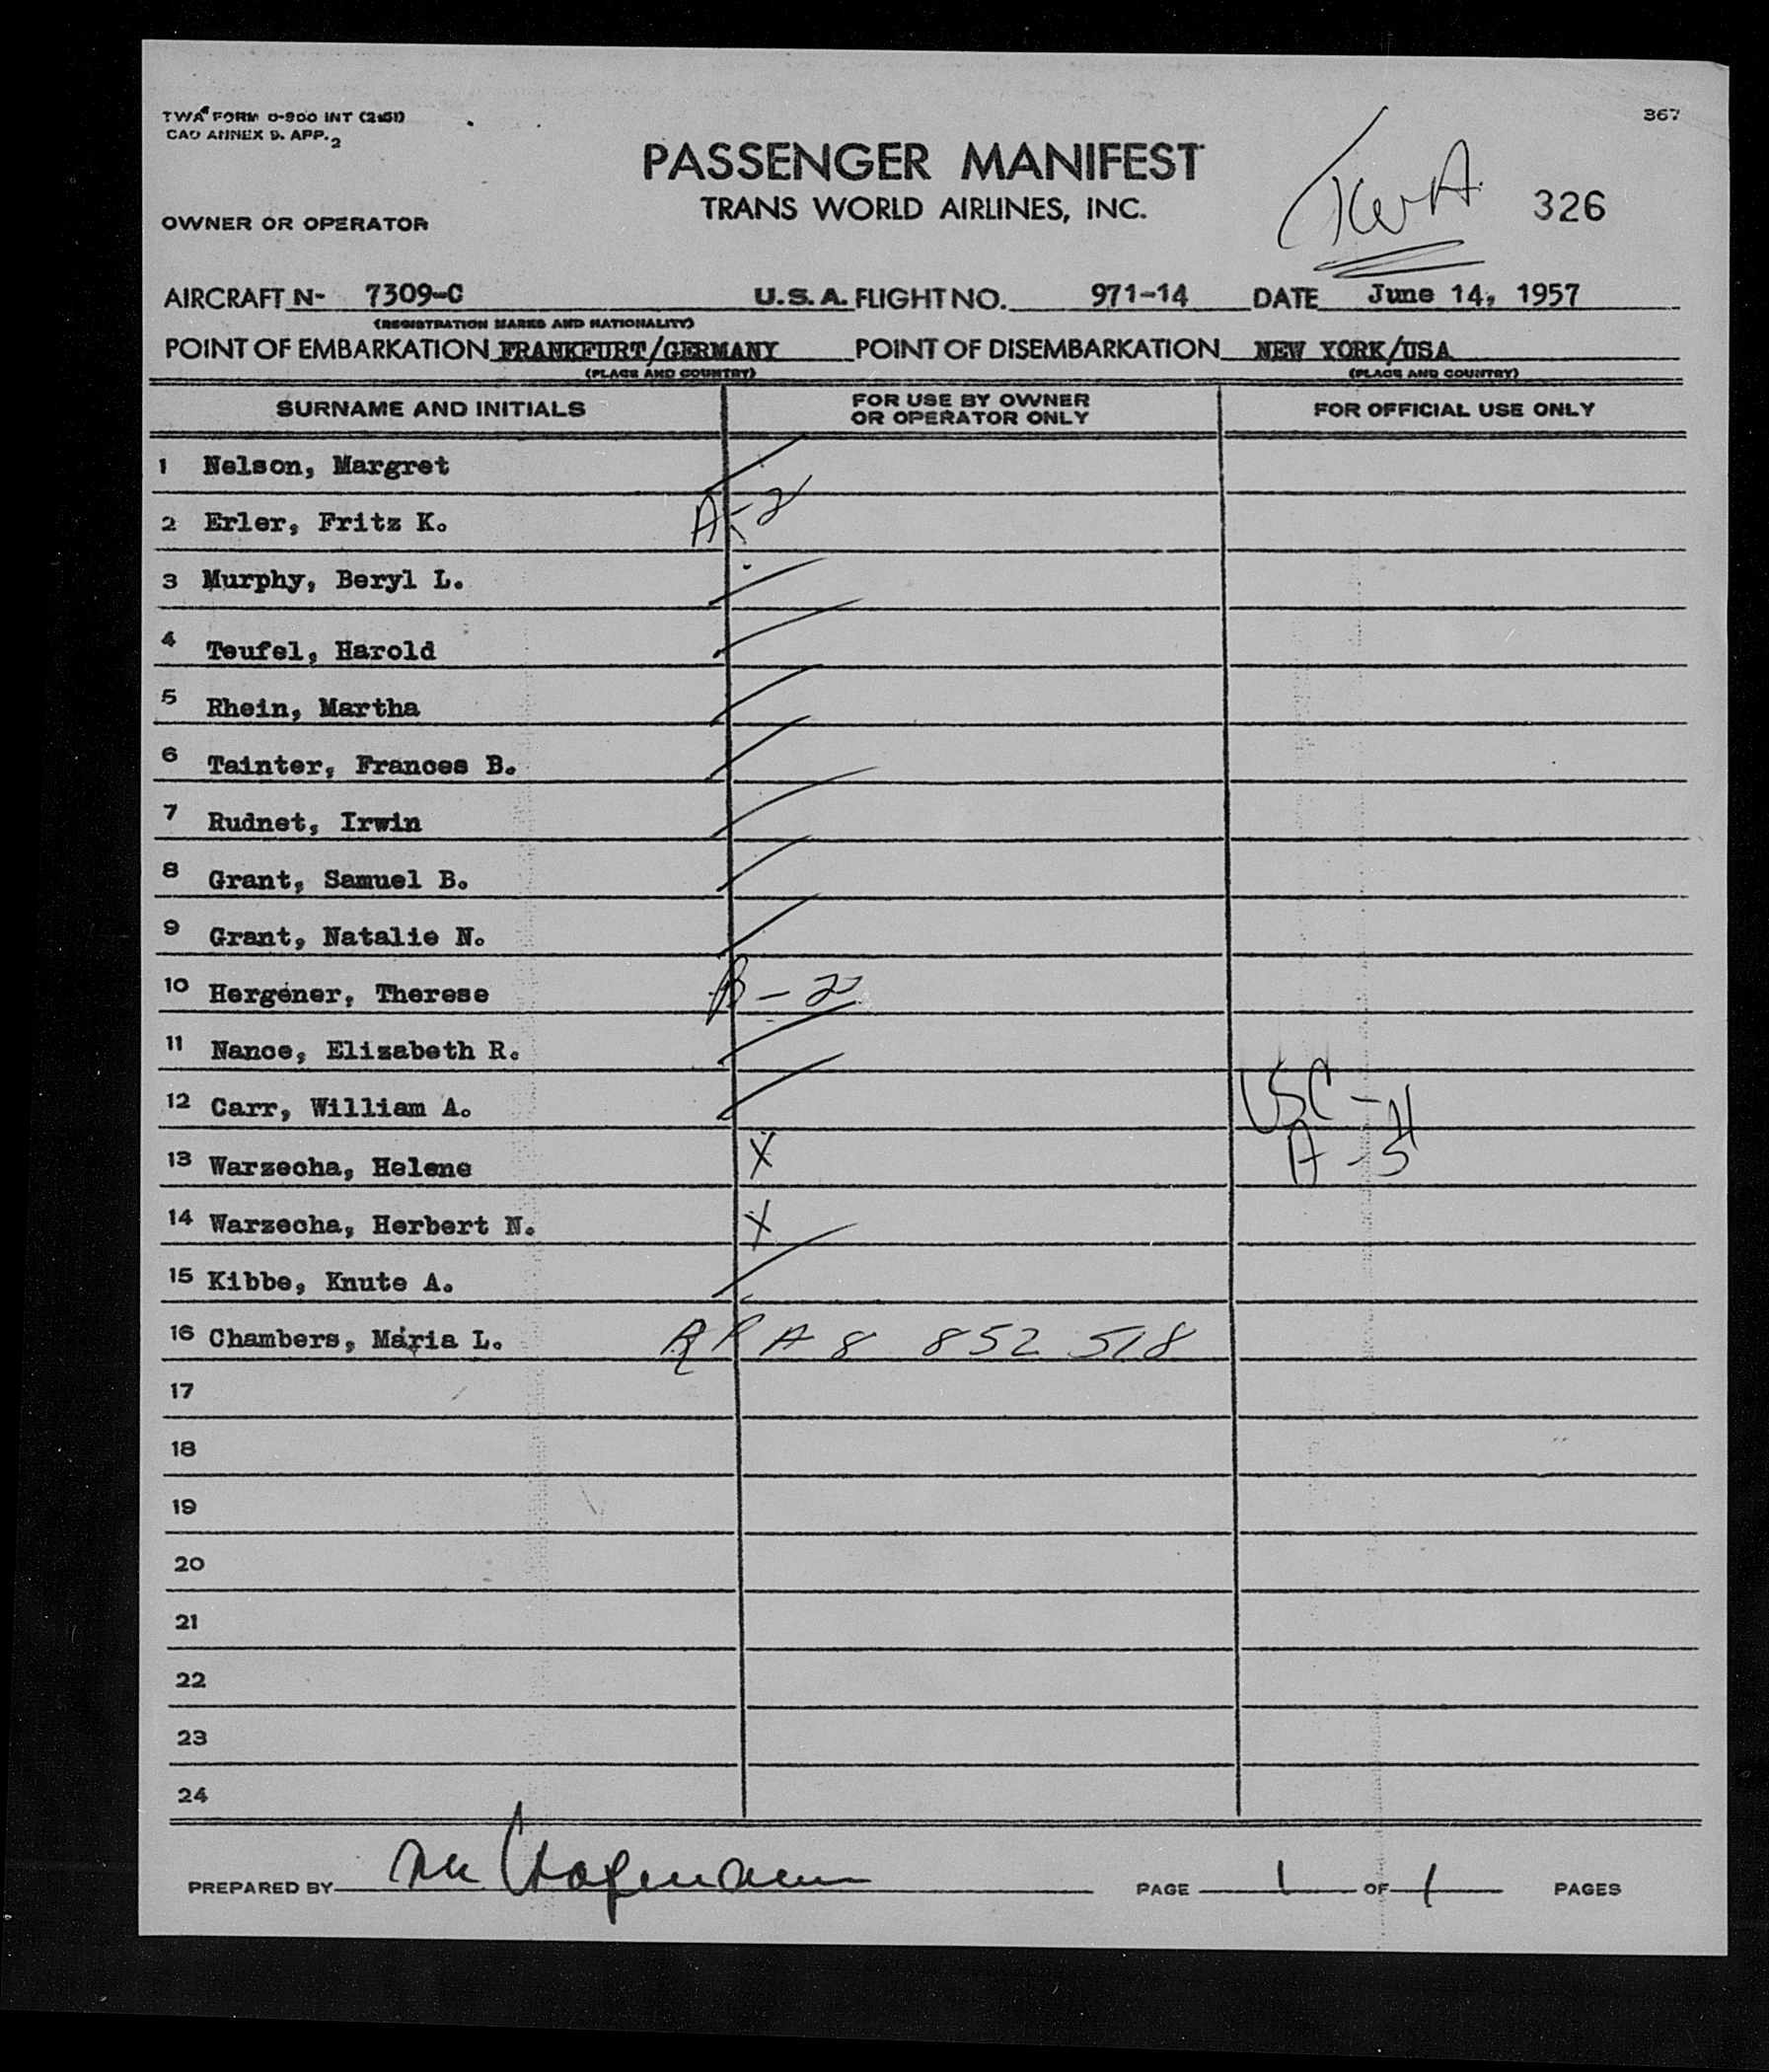 TWA FORM O-900 INT (2-51)
CAO ANNEX 9. APP. 2
367
PASSENGER MANIFEST
TRANS WORLD AIRLINES, INC.
TWA.
326
OWNER OR OPERATOR
AIRCRAFT N- 7309-C U.S.A. FLIGHT NO. 971-14 DATE June 14, 1957
(REGISTRATION MARKS AND NATIONALITY)
POINT OF EMBARKATION FRANKFURT/GERMANY POINT OF DISEMBARKATION NEW YORK/USA
(PLACE AND COUNTRY) (PLACE AND COUNTRY)
SURNAME AND INITIALS FOR USE BY OWNER OR OPERATOR ONLY FOR OFFICIAL USE ONLY
1 Nelson, Margret
2 Erler, Fritz K. A-2
3 Murphy, Beryl L.
4 Teufel, Harold
5 Rhein, Martha
6 Tainter, Frances B.
7 Rudnet, Irwin
8 Grant, Samuel B.
9 Grant, Natalie N.
10 Hergener, Therese B-2
11 Nance, Elizabeth R.
12 Carr, William A. USC-11
13 Warzecha, Helene X A-5
14 Warzecha, Herbert N. X
15 Kibbe, Knute A.
16 Chambers, Maria L. RP A8 852 518
17
18
19
20
21
22
23
24
PREPARED BY PAGE 1 OF 1 PAGES